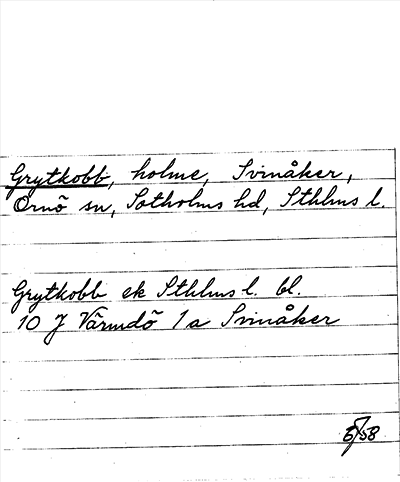 Grytkobb, holme, Svinåker,
Ornö sn, Sotholms hd, Sthlms l.
Grytkobb ek Sthlms l. bl.
10 J Värmdö 1a Svinåker
/58